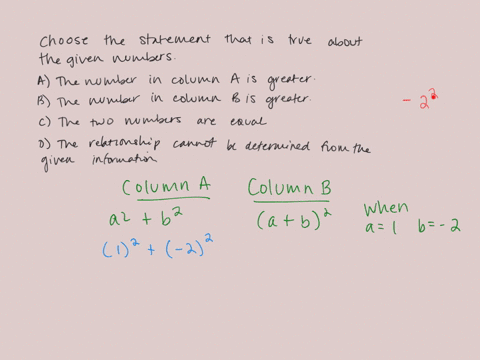 Choose the statement that is true about
the given numbers.
A) The number in column A is greater.
B) The number in column B is greater.
C) The two numbers are equal
D) The relationship cannot be determined from the
given information
- 2²
Column A Column B
a² + b² (a + b)²
when
a = 1 b = -2
(1)² + (-2)²